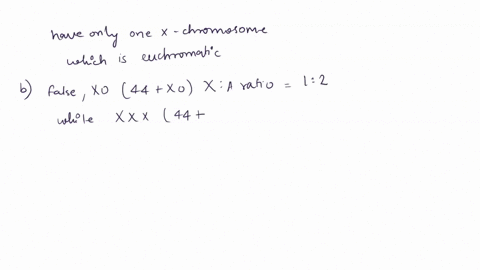 have only one x-chromosome
which is euchromatic
b) false, XO (44 + XO) X:A ratio = 1:2
while XXX (44 +